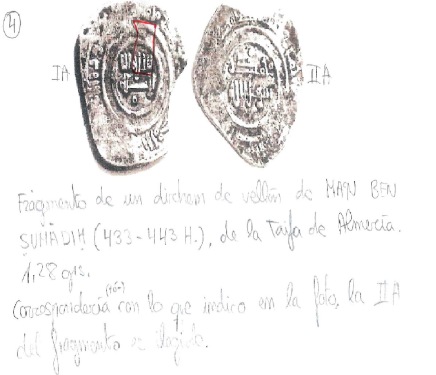 4
IA
IIA
Fragmento de un dirhem de vellón de MAN BEN
SUMADIH (433-443 H.), de la Taifa de Almería.
1,28 grs.
(rojo)
Correspondería con lo que indico en la foto, la IIA
del fragmento es ilegible.